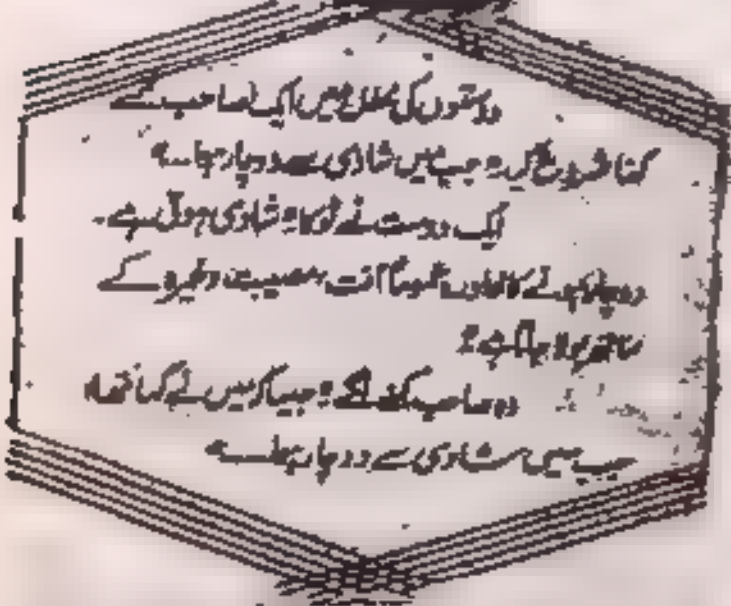 دوستوں کی محفل میں ایک صاحب نے
کہنا شروع کیا "جب میں شادی سے دوچار ہوا۔"
ایک دوست نے ٹوکا "شادی ہوتی ہے۔
دوچار ہونے کا عموماً آفت، مصیبت وغیرہ کے
ساتھ بولا جاتا ہے"
وہ صاحب کہنے لگے "جیسا کہ میں نے کہا تھا،
جب میں شادی سے دوچار ہوا۔"